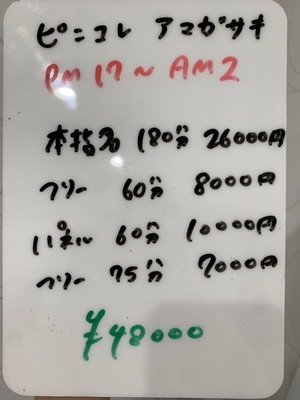 ピニコレ アマガサキ
PM 17〜AM2
本指名 180分 26000円
フリー 60分 8000円
パネル 60分 10000円
フリー 75分 7000円
¥48000